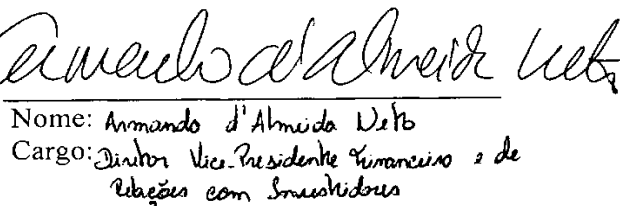 Armando d'Almeida Neto
Nome: Armando d'Almeida Neto
Cargo: Diretor Vice-Presidente Financeiro e de
Relações com Investidores